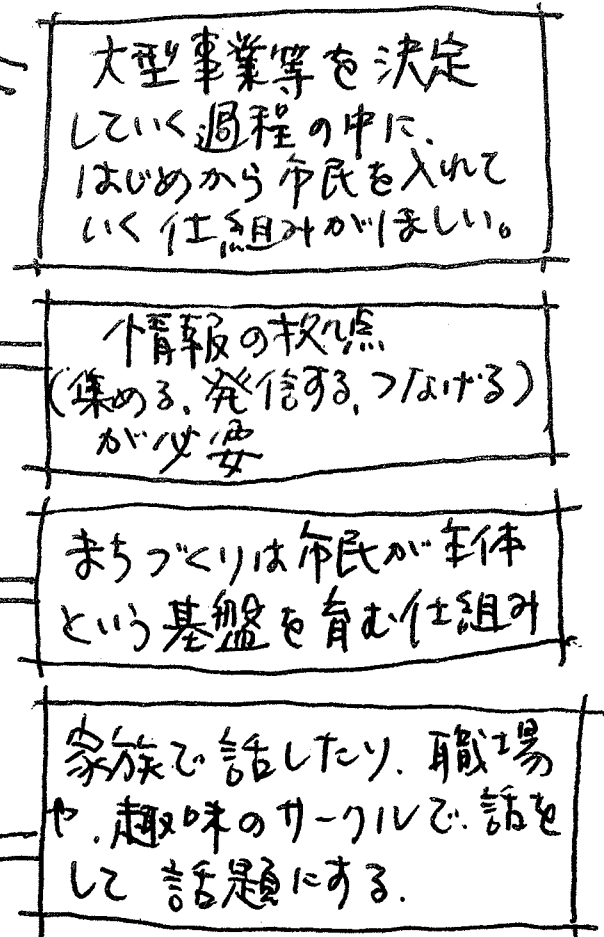 大型事業等を決定
していく過程の中に、
はじめから市民を入れて
いく仕組みがほしい。
情報の拠点
(集める、発信する、つなげる)
が必要
まちづくりは市民が主体
という基盤を育む仕組み
家族で話したり、職場
や、趣味のサークルで、話を
して話題にする.